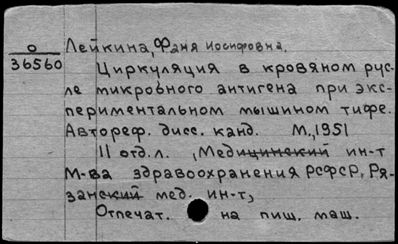 О
36560
Лейкина, Фаня Иосифовна.
Циркуляция в кровяном рус-
ле микробного антигена при экс-
периментальном мышином тифе.
Автореф. дисс. канд. М., 1951
11 отд. л. , Медицинский ин-т
М-ва здравоохранения РСФСР, Ря-
занский мед. ин-т,
Отпечат. на пиш. маш.